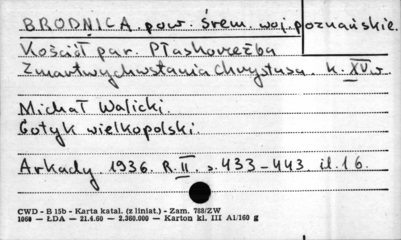 BRODNICA pow. Śrem. woj. poznańskie.
Kościół par. Płaskorzeźba
Zmartwychwstania Chrystusa. k. XV w.
Michał Walicki.
Gotyk wielkopolski.
Arkady. 1936. R. II. s. 433-443. il. 16.
CWD - B 15b - Karta katal. (z liniat.) - Zam. 788/ZW
1068 — ŁDA — 21.4.60 — 2.360.000 — Karton kl. III A1/160 g